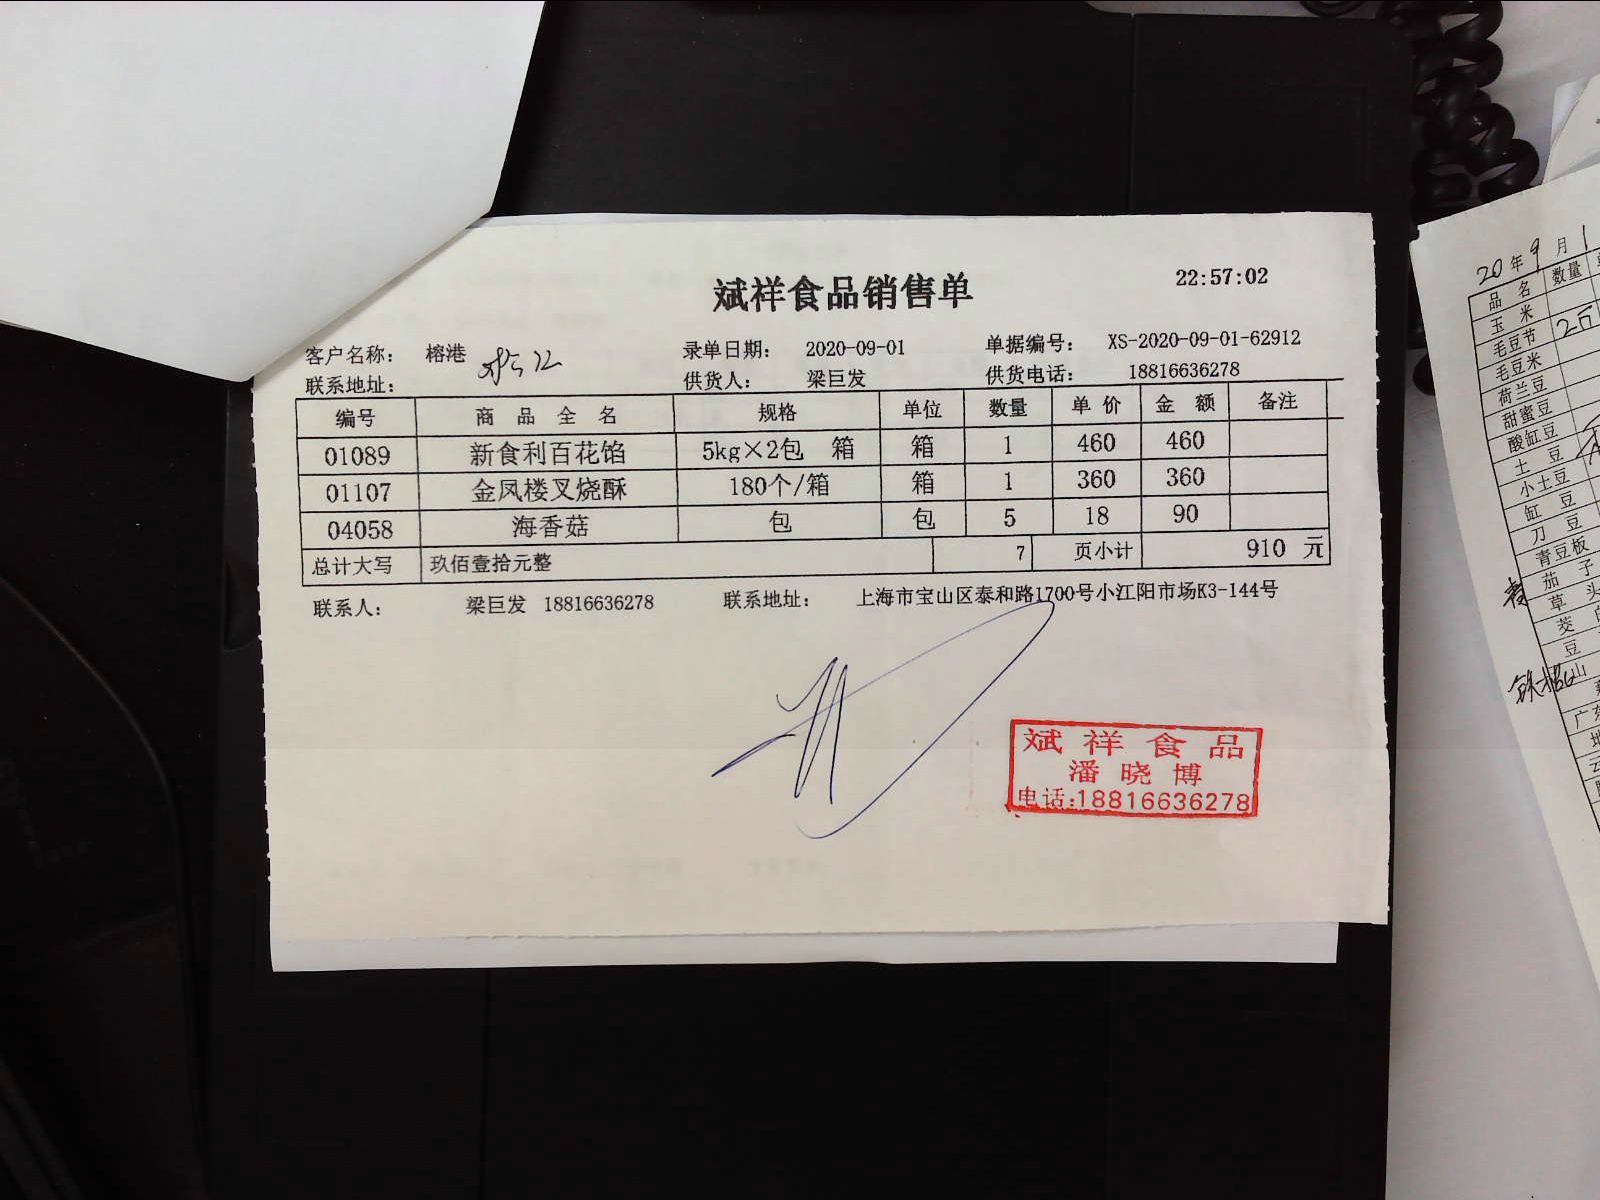 斌祥食品销售单
22:57:02
客户名称： 榕港 录单日期： 2020-09-01 单据编号： XS-2020-09-01-62912
联系地址： 供货人： 梁巨发 供货电话： 18816636278
编号 商品全名 规格 单位 数量 单价 金额 备注
01089 新食利百花馅 5kg×2包 箱 箱 1 460 460
01107 金凤楼叉烧酥 180个/箱 箱 1 360 360
04058 海香菇 包 包 5 18 90
总计大写 玖佰壹拾元整 7 页小计 910 元
联系人： 梁巨发 18816636278 联系地址： 上海市宝山区泰和路1700号小江阳市场K3-144号
斌祥食品
潘晓博
电话:18816636278
20年9月1
品名 数量
玉米
毛豆节 2斤
毛豆米
荷兰豆
甜蜜豆
酸缸豆
土豆
小土豆
缸豆
刀豆
青豆板
茄子
草头
茭
豆
山
广东